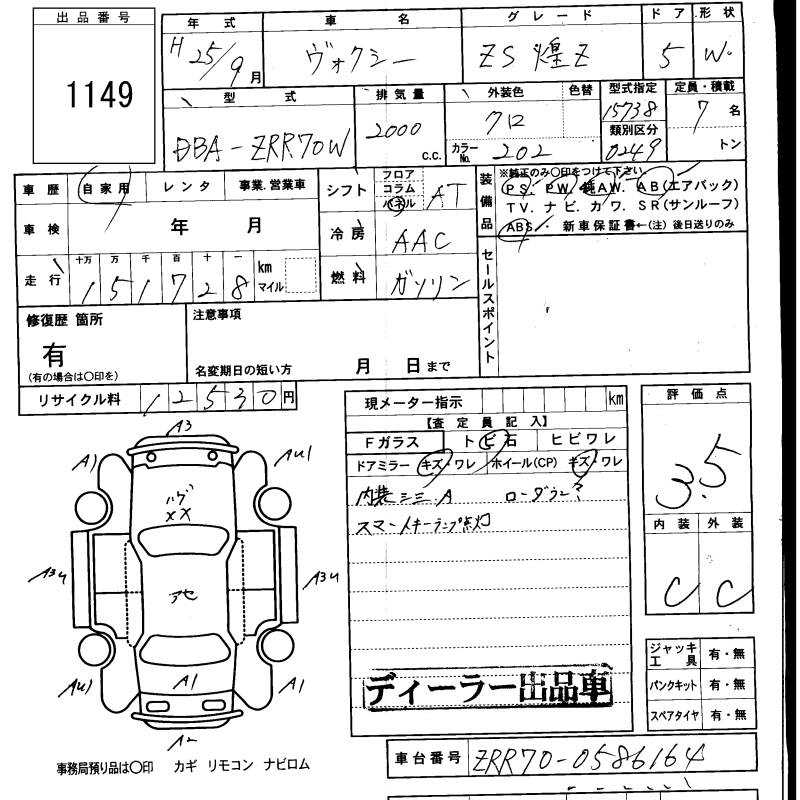 出品番号
1149
年式 車名 グレード ドア 形状
H 25/9月 ヴォクシー ZS 煌Z 5 W
型式 排気量 外装色 色替 型式指定 定員・積載
DBA-ZRR70W 2000 c.c. クロ 15738 7名
カラーNo. 202 類別区分 0249 トン
車歴 自家用 レンタ 事業.営業車
シフト フロア コラム パネル AT
車検 年 月
冷房 AAC
走行 十万 万 千 百 十 一
151728 km マイル
燃料 ガソリン
装備品
※純正のみ○印をつけて下さい
PS. PW. 純AW. AB(エアバック)
TV. ナビ. カワ. SR(サンルーフ)
ABS. 新車保証書←(注)後日送りのみ
セールスポイント
修復歴 箇所
有
(有の場合は○印を)
注意事項
名変期日の短い方 月 日まで
リサイクル料 12530円
現メーター指示 km
【査定員記入】
Fガラス トビ石 ヒビワレ
ドアミラー キズ・ワレ ホイール(CP) キズ・ワレ
内装シミ.A
スマートキーランプ点灯
ディーラー出品車
評価点
3.5
内装 外装
C C
ジャッキ工具 有・無
パンクキット 有・無
スペアタイヤ 有・無
A3
A1 AU1
ハゲ
XX
A3U A3U
アセ
AU1 A1 A1
A2
事務局預り品は○印 カギ リモコン ナビロム
車台番号 ZRR70-0586164